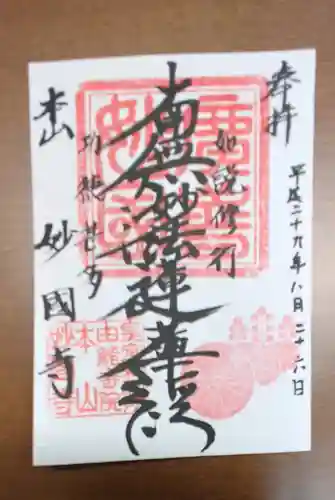 奉拝
平成二十九年八月二十六日
如説修行
南無妙法蓮華経
功徳甚多
本山
妙國寺